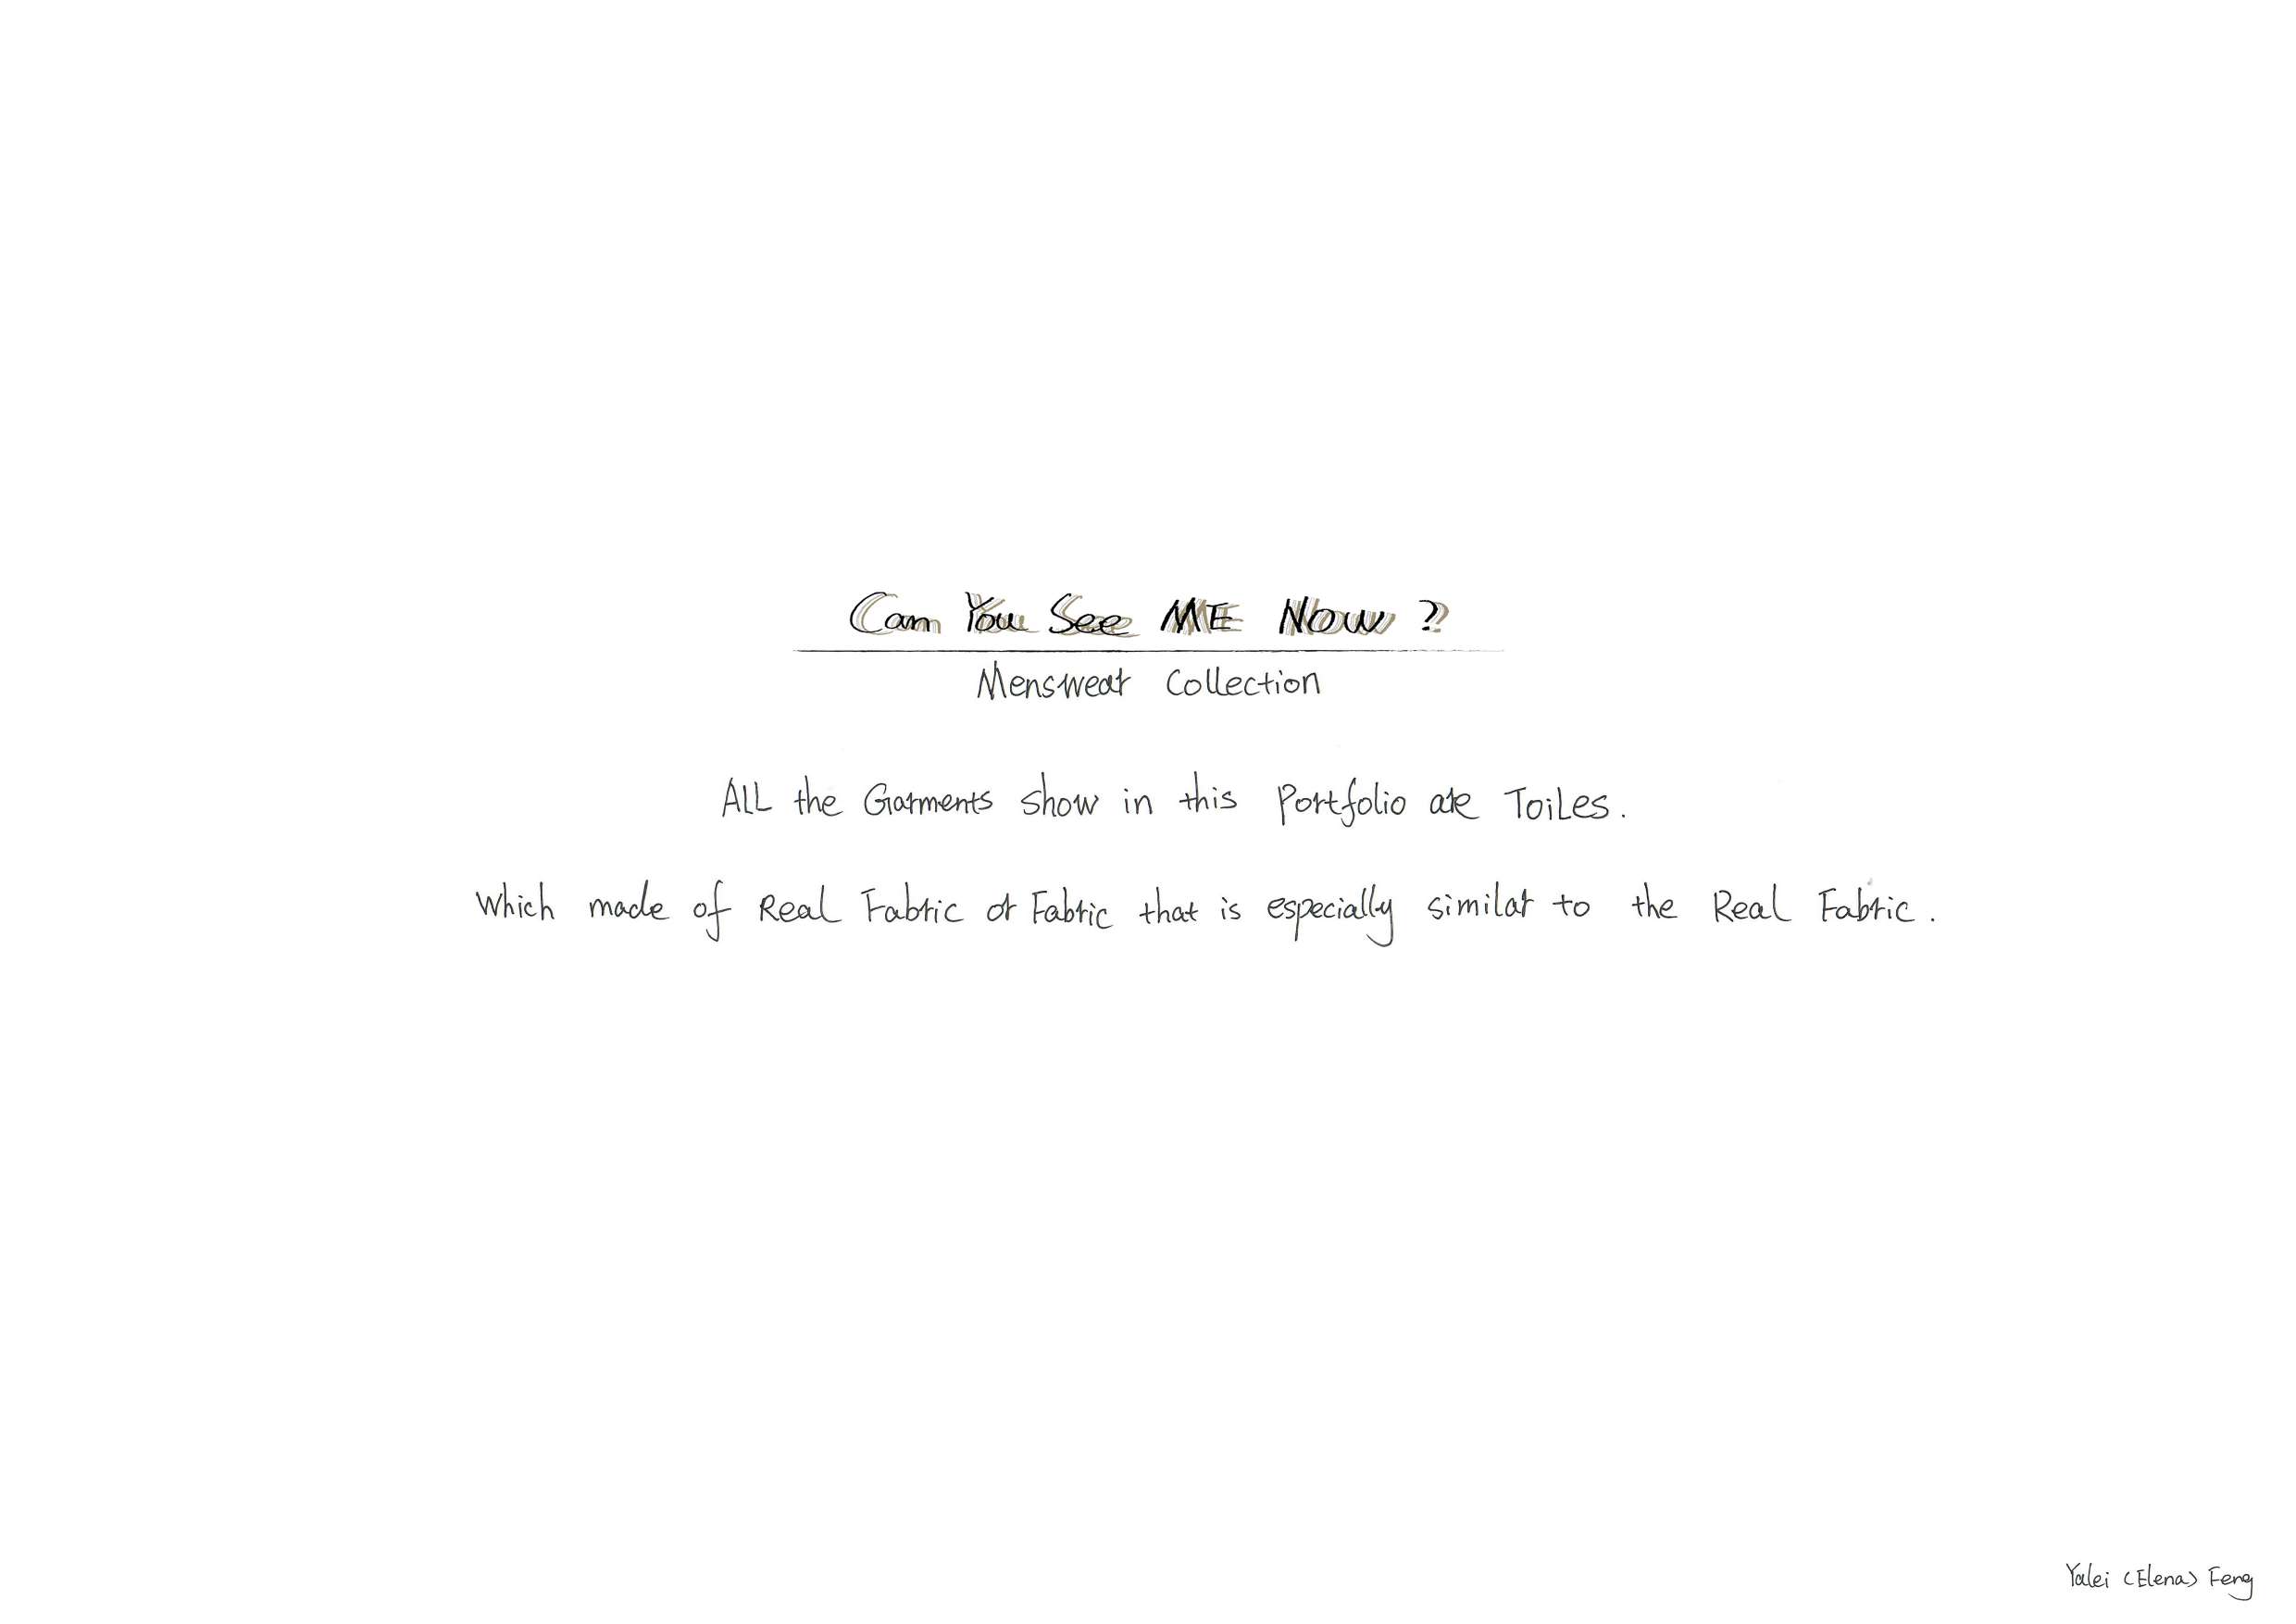 Can You See ME Now ?
Menswear Collection
ALL the Garments show in this Portfolio are Toiles.
Which made of Real Fabric or Fabric that is especially similar to the Real Fabric.
Yalei (Elena) Feng